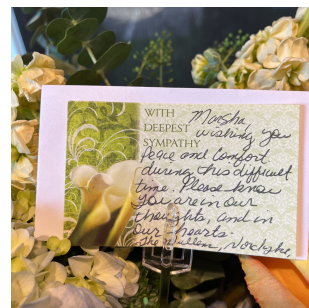 WITH
DEEPEST
SYMPATHY
Marsha,
wishing you
Peace and Comfort
during this difficult
time. Please know
you are in our
thoughts, and in
our hearts-
The